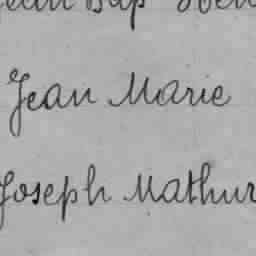 Jean Bap
Jean Marie
Joseph Mathur